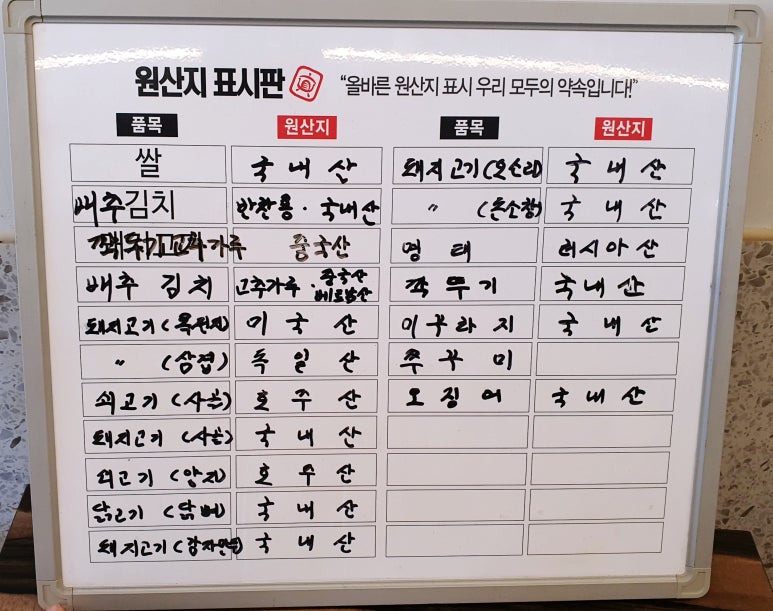 원산지 표시판 "올바른 원산지 표시 우리 모두의 약속입니다!"
품목 원산지 품목 원산지
쌀 국내산 돼지고기(오소리) 국내산
배추김치 반찬용·국내산 " (돈소창) 국내산
고추가루 중국산 명태 러시아산
배추김치 고추가루·중국산 베트남산 깍두기 국내산
돼지고기(목전지) 미국산 미꾸라지 국내산
" (삼겹) 독일산 쭈꾸미
쇠고기(사골) 호주산 오징어 국내산
돼지고기(사골) 국내산
쇠고기(양지) 호주산
닭고기 국내산
돼지고기 국내산